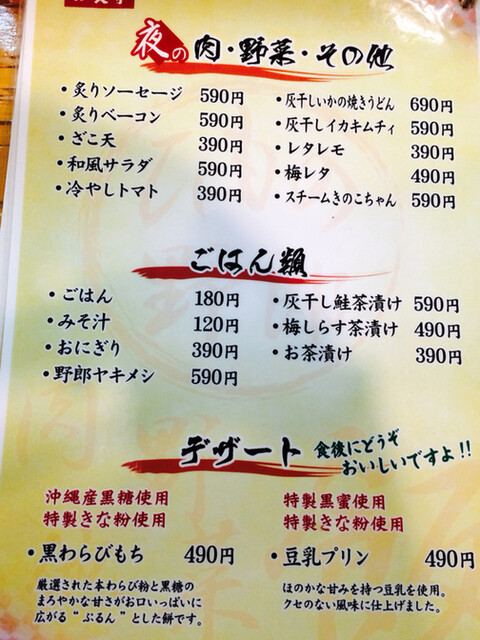 夜の 肉・野菜・その他
・炙りソーセージ 590円
・炙りベーコン 590円
・ざこ天 390円
・和風サラダ 590円
・冷やしトマト 390円
・灰干しいかの焼きうどん 690円
・灰干しイカキムチィ 590円
・レタレモ 390円
・梅レタ 490円
・スチームきのこちゃん 590円
ごはん類
・ごはん 180円
・みそ汁 120円
・おにぎり 390円
・野郎ヤキメシ 590円
・灰干し鮭茶漬け 590円
・梅しらす茶漬け 490円
・お茶漬け 390円
デザート
食後にどうぞ
おいしいですよ!!
沖縄産黒糖使用
特製きな粉使用
・黒わらびもち 490円
厳選された本わらび粉と黒糖の
まろやかな甘さがお口いっぱいに
広がる“ぷるん”とした餅です。
特製黒蜜使用
特製きな粉使用
・豆乳プリン 490円
ほのかな甘みを持つ豆乳を使用。
クセのない風味に仕上げました。